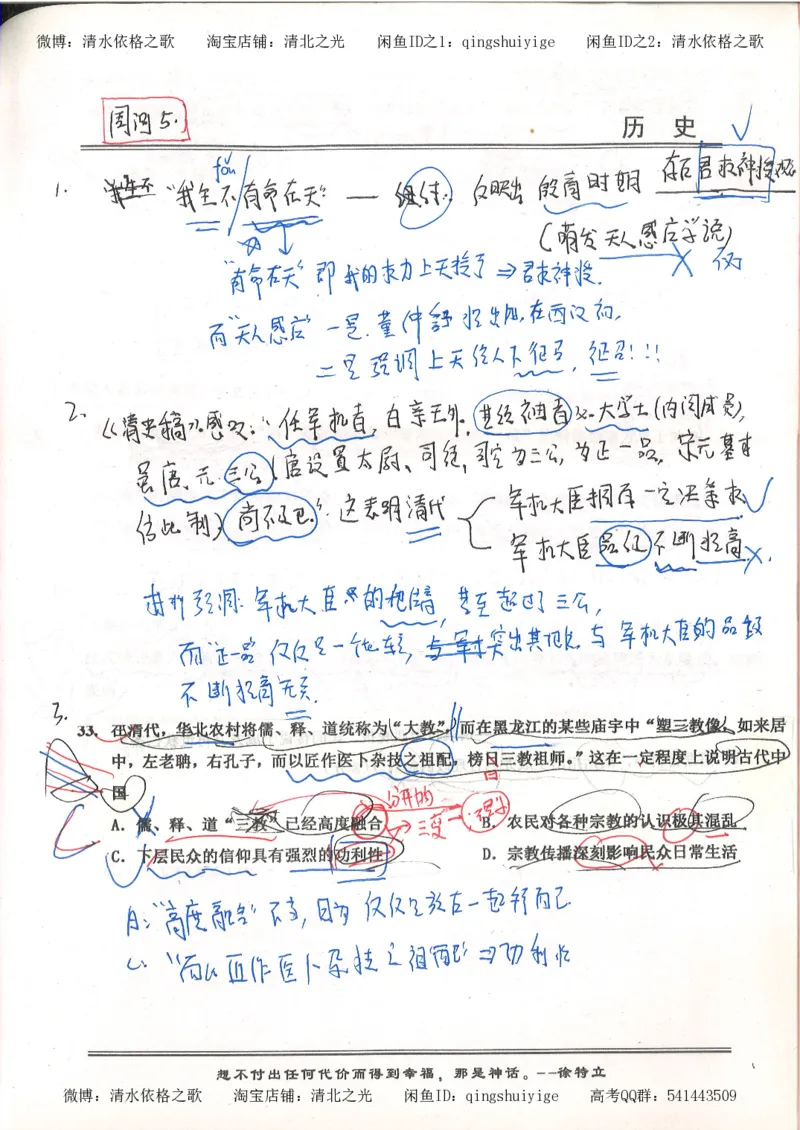 微博：清水依格之歌 淘宝店铺：清北之光 闲鱼ID之1：qingshuiyige 闲鱼ID之2：清水依格之歌
周测5.
历 史
fǒu
1. "我生不有命在天" — 纣 反映出 殷商时期 存在君权神授观
(萌发天人感应学说)
"有命在天" 即 我的权力上天授予 ⇒ 君权神授.
而"天人感应" 一是.董仲舒提出的,在西汉初,
二是强调上天给人下征召,征召!!!
2. 《清史稿》感叹:"任军机者,自亲王外,其给神者 大学士(内阁成员),
虽唐、元三公(唐设置太尉、司徒、司空为三公,为正一品,宋元基本
仿此制)尚不及已". 这表明清代
军机大臣拥有一定决策权
军机大臣品位不断提高
材料强调:军机大臣 的地位,甚至超过了三公,
而"正一品"仅仅是一 , 突出其地位与军机大臣的品级
不断提高无关.
3.
33. 在清代，华北农村将儒、释、道统称为"大教"，而在黑龙江的某些庙宇中"塑三教像，如来居
中，左老聃，右孔子，而以匠作医卜杂技之祖配，榜曰三教祖师。"这在一定程度上说明古代中
国
分开的
A. 儒、释、道"三教"已经高度融合 B. 农民对各种宗教的认识极其混乱
三受
C. 下层民众的信仰具有强烈的功利性 D. 宗教传播深刻影响民众日常生活
A: "高度融合"不对,因为仅仅是放在一起祭祀
C. "而以匠作医卜杂技之祖配" ⇒ 功利性
想不付出任何代价而得到幸福，那是神话。--徐特立
微博：清水依格之歌 淘宝店铺：清北之光 闲鱼ID：qingshuiyige 高考QQ群：541443509